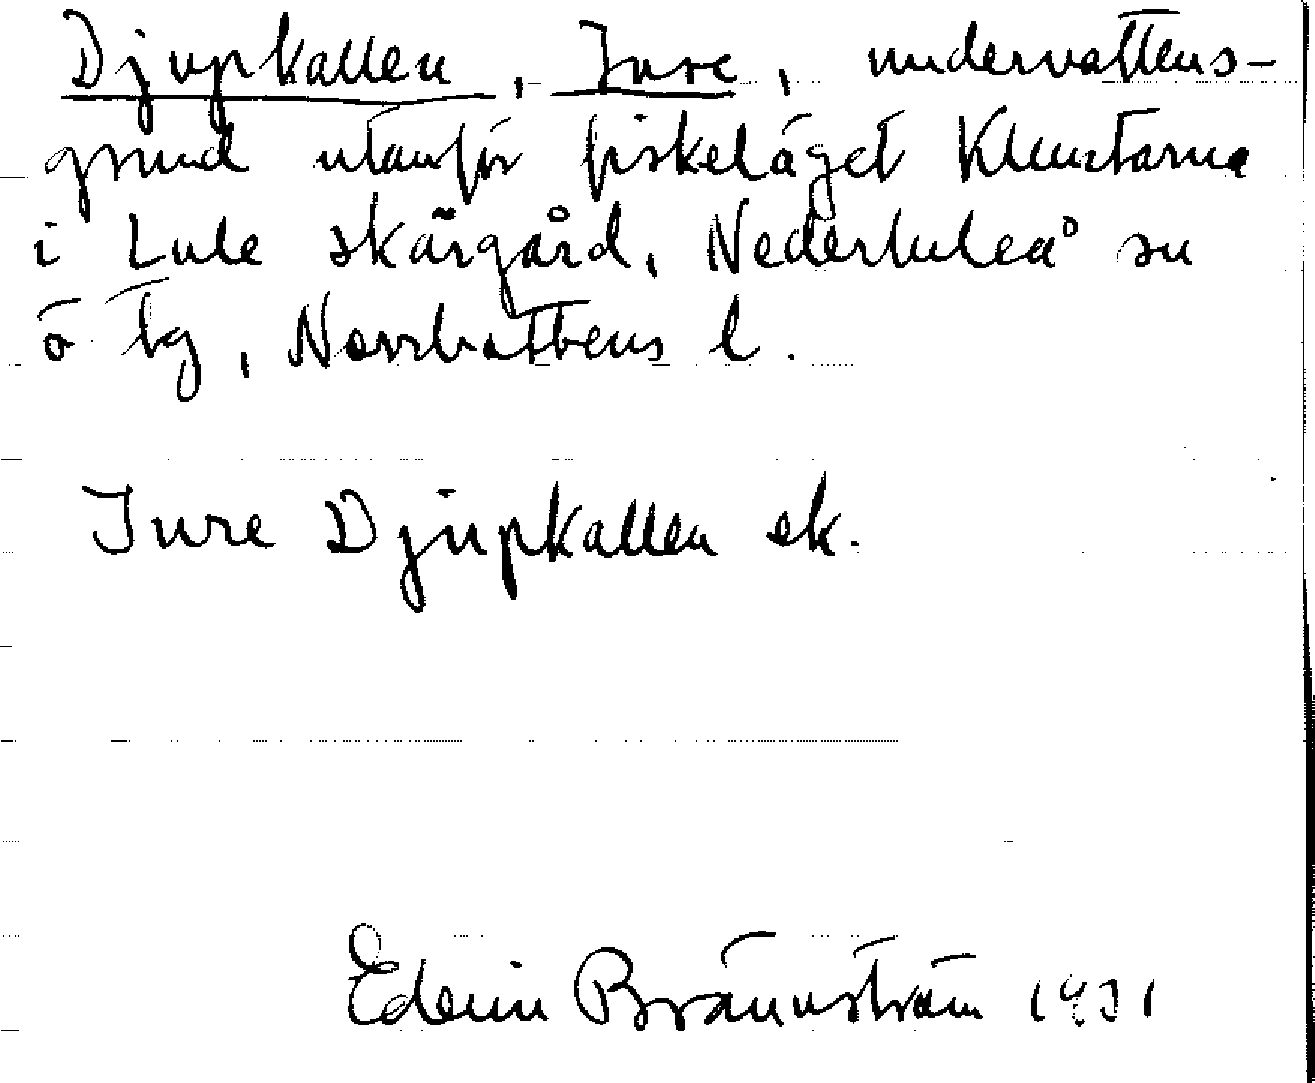 Djupkallen, Inre, undervattens-
grund utanför fiskeläget Kluntarna
i Lule skärgård, Nederluleå sn
ö tg, Norrbottens l.
Inre Djupkallen ek.
Edvin Brännström 1931